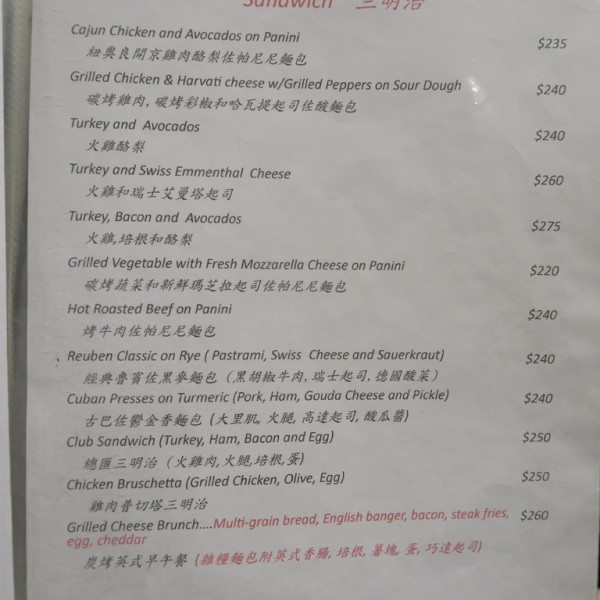 Sandwich 三明治
Cajun Chicken and Avocados on Panini $235
紐奧良開京雞肉酪梨佐帕尼尼麵包
Grilled Chicken & Harvati cheese w/Grilled Peppers on Sour Dough $240
碳烤雞肉, 碳烤彩椒和哈瓦提起司佐酸麵包
Turkey and Avocados $240
火雞酪梨
Turkey and Swiss Emmenthal Cheese $260
火雞和瑞士艾曼塔起司
Turkey, Bacon and Avocados $275
火雞,培根和酪梨
Grilled Vegetable with Fresh Mozzarella Cheese on Panini $220
碳烤蔬菜和新鮮瑪芝拉起司佐帕尼尼麵包
Hot Roasted Beef on Panini $240
烤牛肉佐帕尼尼麵包
Reuben Classic on Rye ( Pastrami, Swiss Cheese and Sauerkraut) $240
經典魯賓佐黑麥麵包（黑胡椒牛肉, 瑞士起司, 德國酸菜）
Cuban Presses on Turmeric (Pork, Ham, Gouda Cheese and Pickle) $240
古巴佐鬱金香麵包 (大里肌, 火腿, 高達起司, 酸瓜醬)
Club Sandwich (Turkey, Ham, Bacon and Egg) $250
總匯三明治（火雞肉,火腿,培根,蛋)
Chicken Bruschetta (Grilled Chicken, Olive, Egg) $250
雞肉普切塔三明治
Grilled Cheese Brunch....Multi-grain bread, English banger, bacon, steak fries, $260
egg, cheddar
炭烤英式早午餐 (雜糧麵包附英式香腸, 培根, 薯塊, 蛋, 巧達起司)